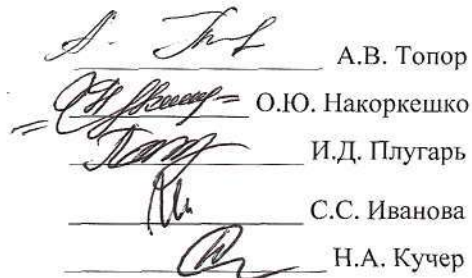 А.В. Топор
О.Ю. Накоркешко
И.Д. Плугарь
С.С. Иванова
Н.А. Кучер